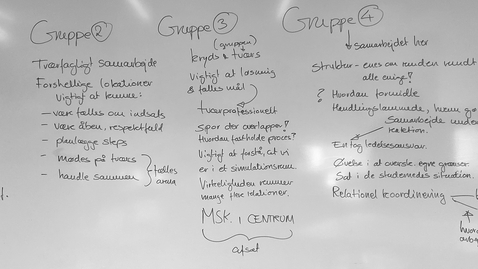 Gruppe 2
Tværfagligt samarbejde
Forskellige lokationer
Vigtigt at kunne:
- være fælles om indsats
- være åben, respektfuld
- planlægge steps
- mødes på tværs
- handle sammen
fælles
Gruppe 3
(gruppen)
kryds & tværs
Vigtigt at løsning
& fælles mål
tværprofessionelt
Spor der overlapper?
Hvordan fastholde proces?
Vigtigt at forstå, at vi
er i et simulationsrum.
Virkeligheden rummer
mange flere relationer.
MSK. I CENTRUM
afsæt
Gruppe 4
samarbejdet her
Struktur - ens om runden rundt
alle enige?
? Hvordan formidle
Handlingslammede, hvem gør
Samarbejde under
relation.
En tog ledelsesansvar.
Øvelse i at overskr. egne grænser
Sat i de studerendes situation.
Relationel koordinering